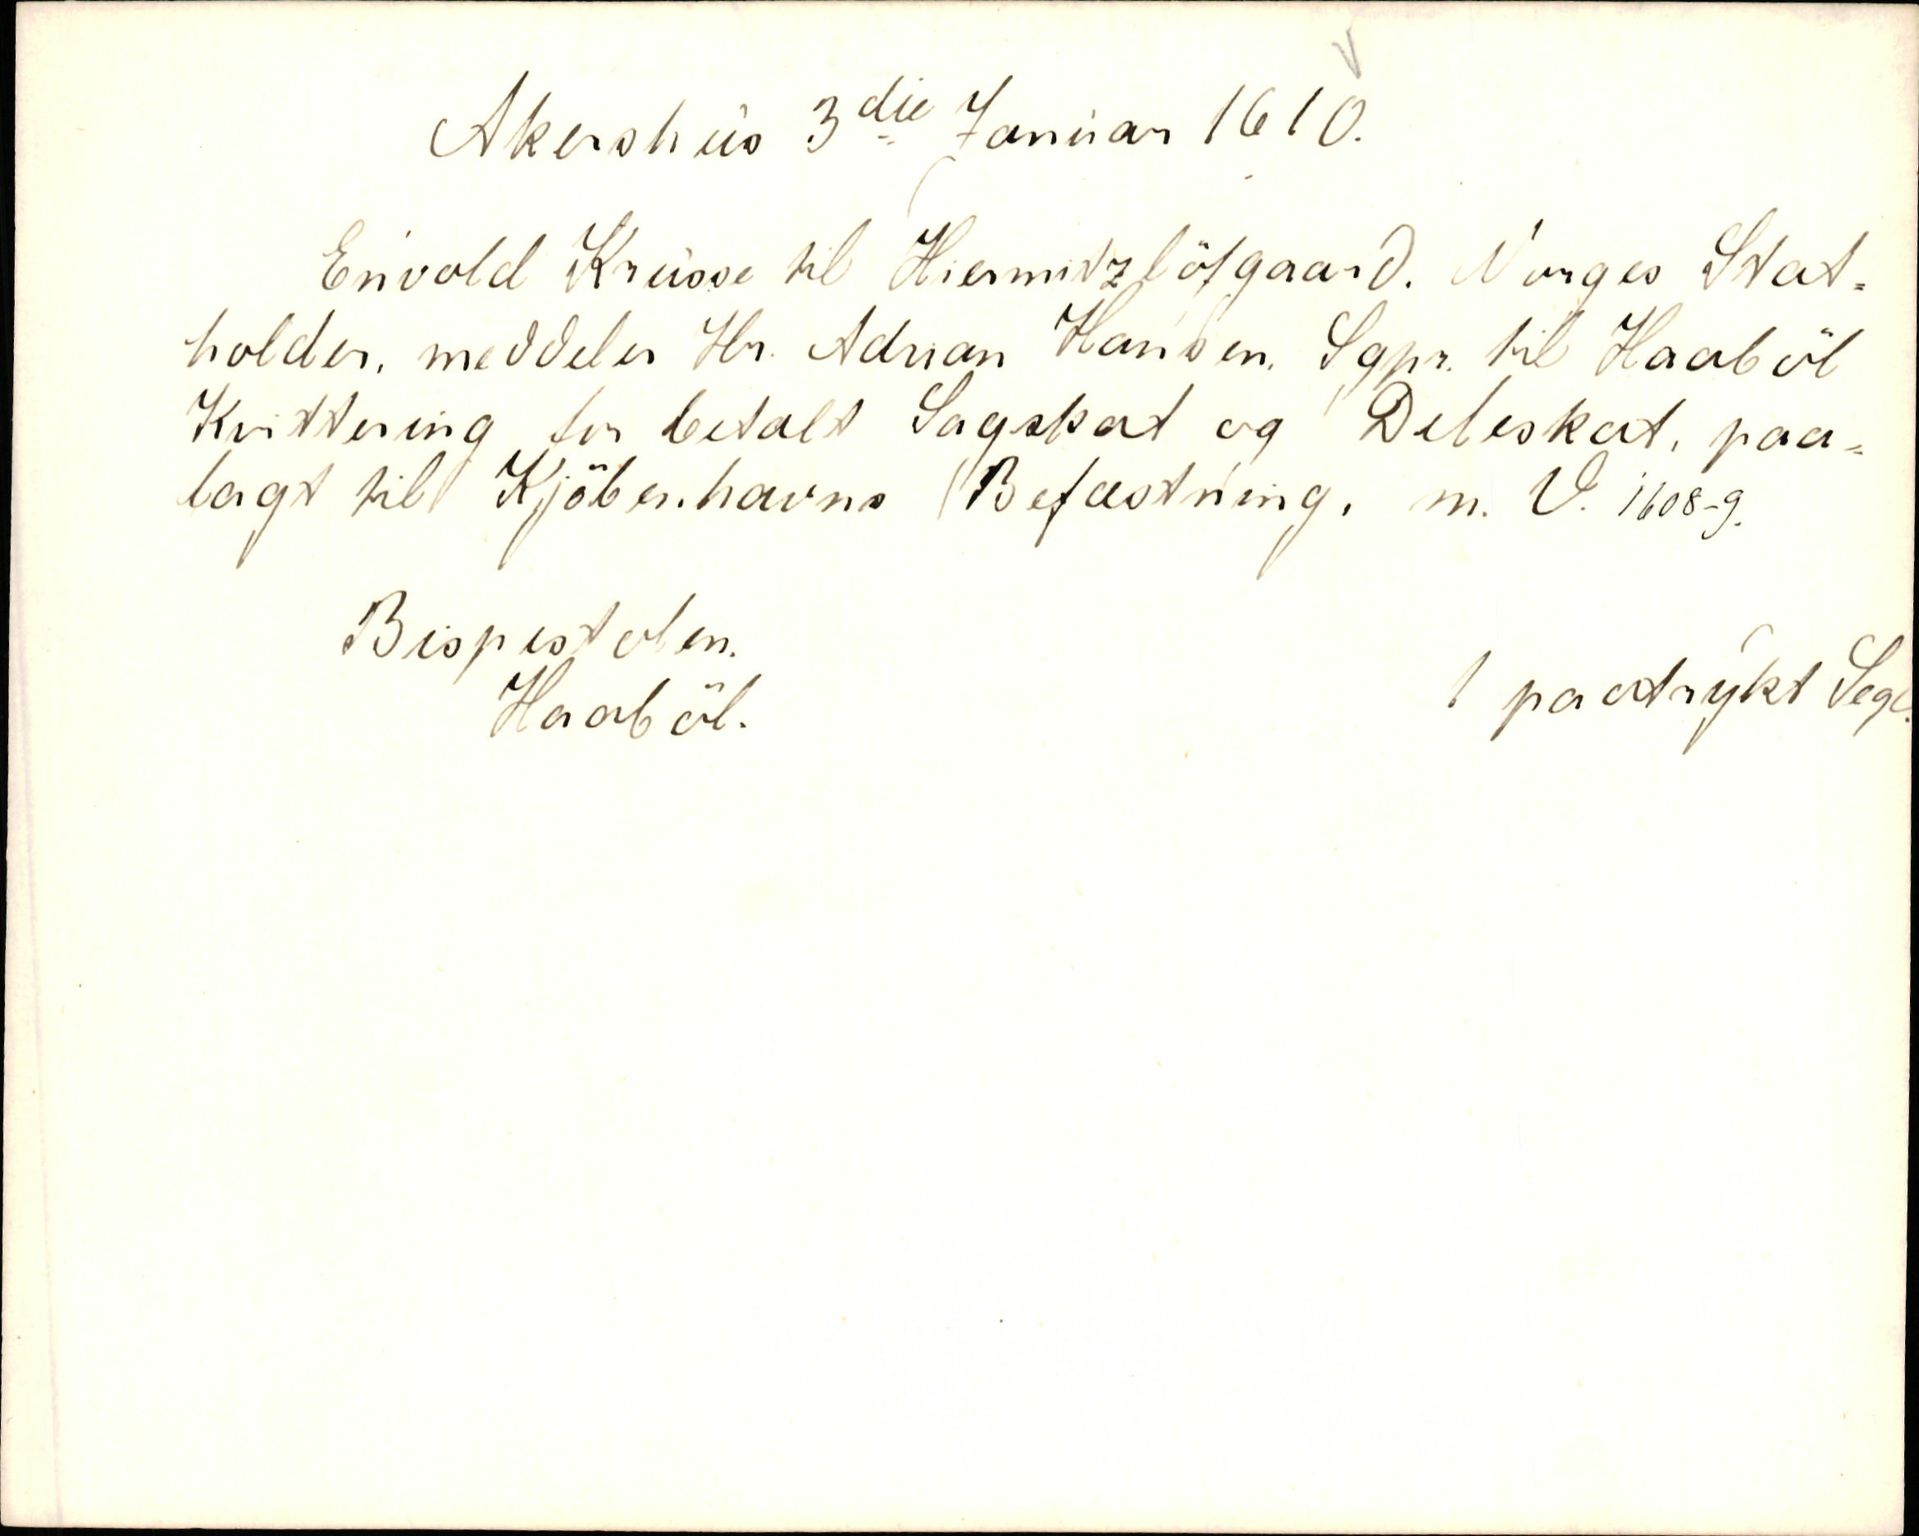 Akershus 3die Januar 1610.
Envold Krusse til Hiermitzlöfgaard. Norges Stat-
holder, meddeler Hr. Adrian Hansen. Sgpr. til Haaböl
Kvittering for betalt Sagskat og Deleskat, paa-
lagt til Kjöbenhavns Befæstning, m. V. 1608-9.
Bispestolen.
Haaböl.
1 paatrykt Segl.